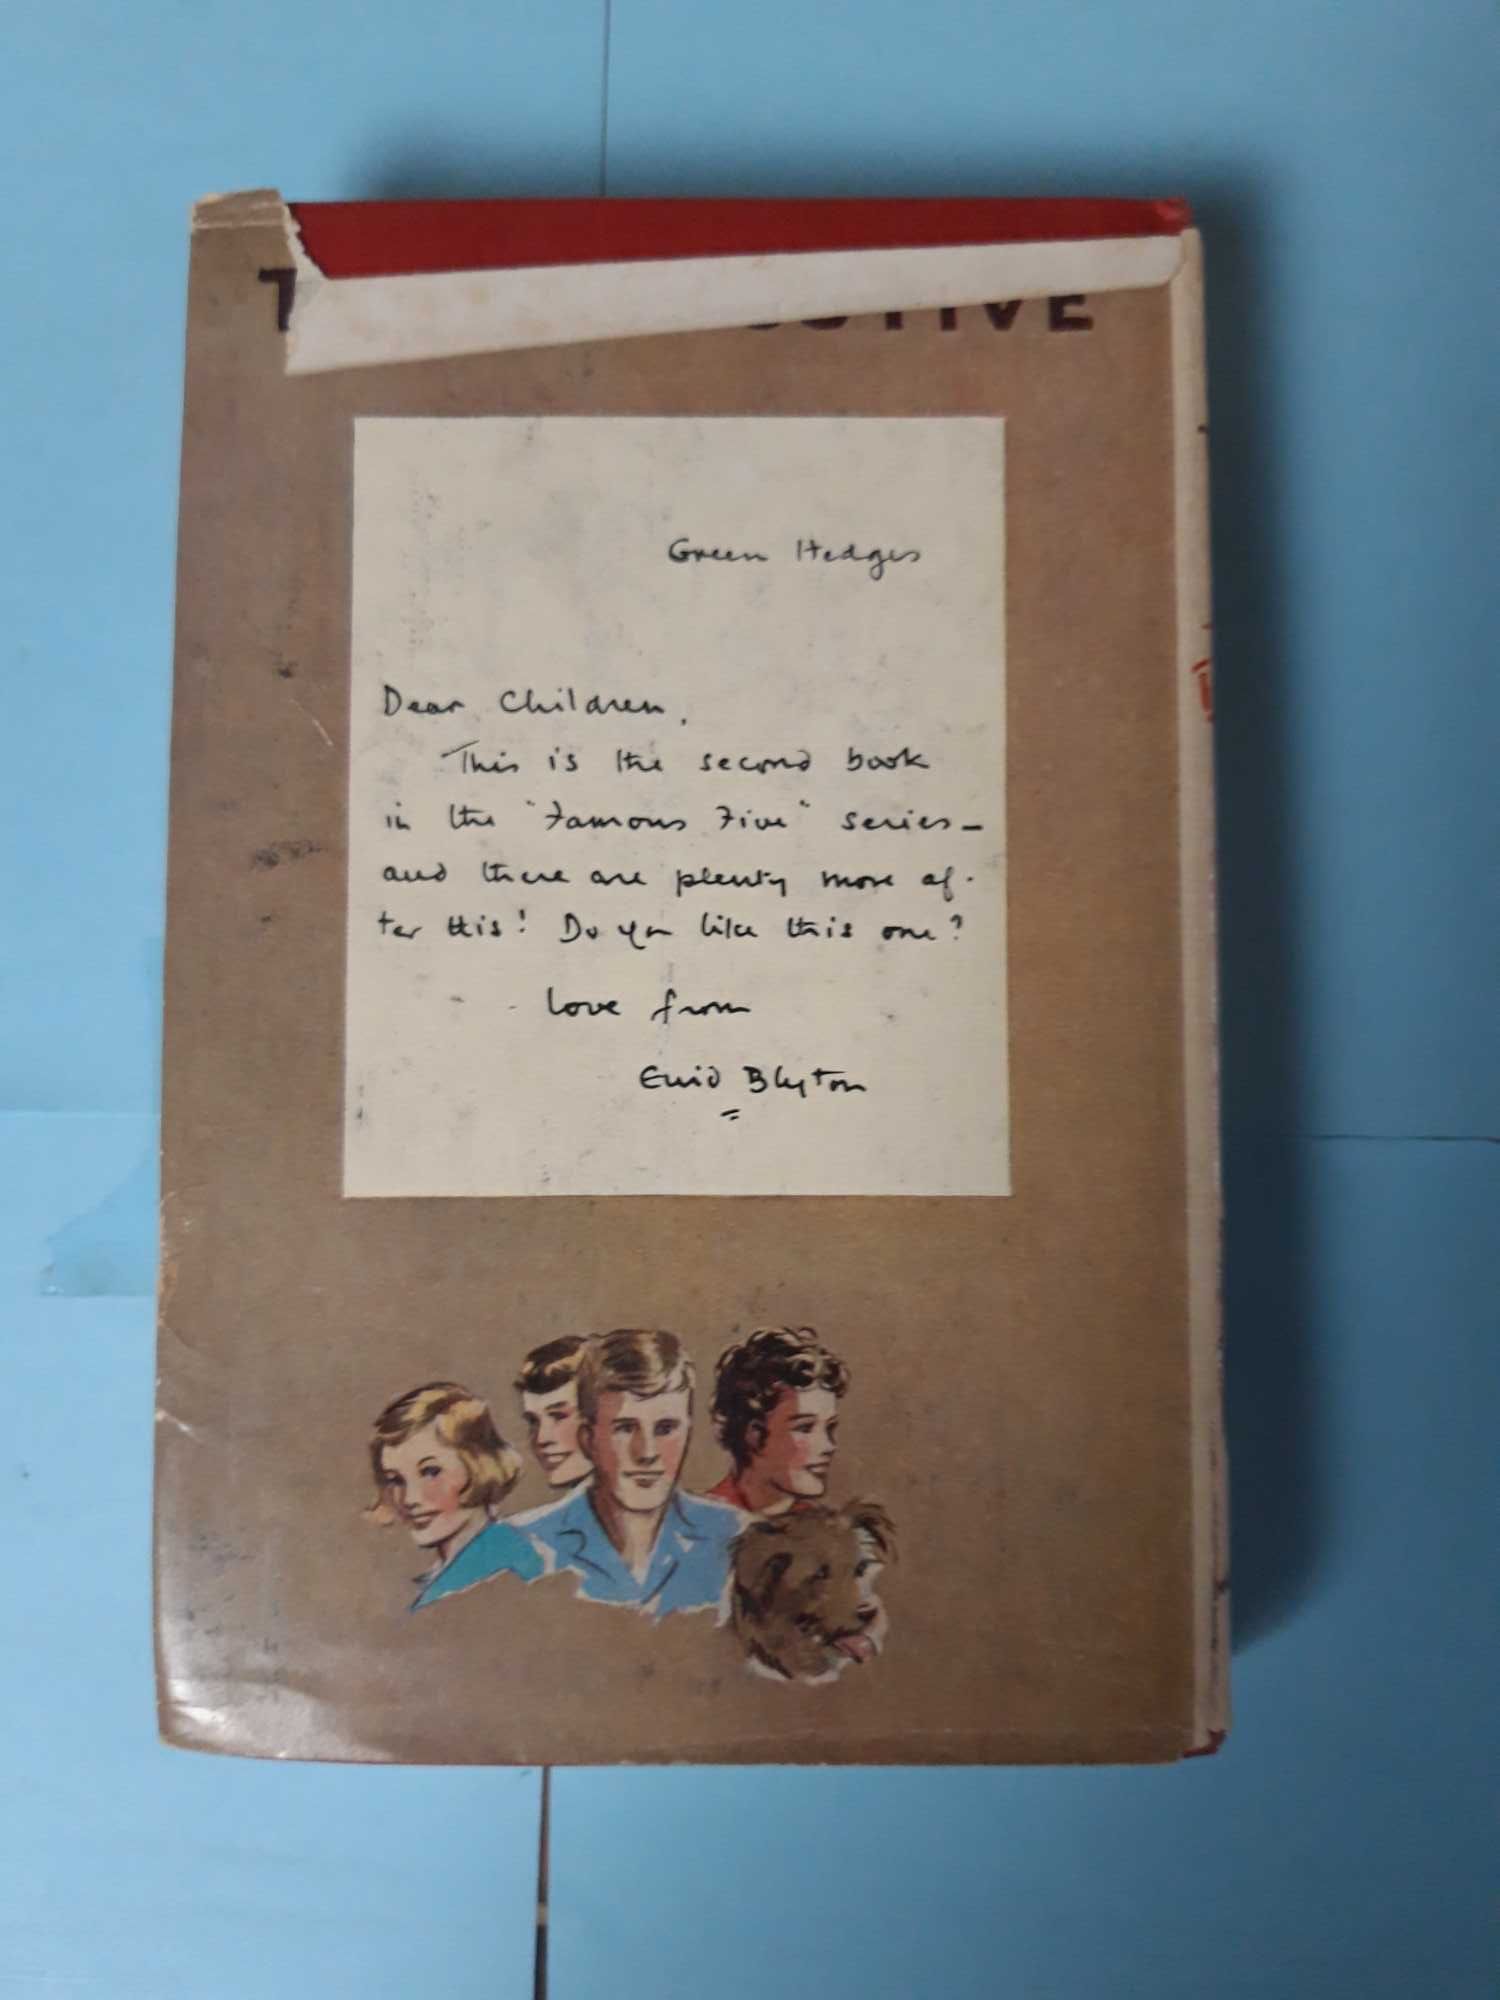 Green Hedges
Dear Children,
This is the second book
in the "Famous Five" series -
and there are plenty more af-
ter this! Do you like this one?
love from
Enid Blyton